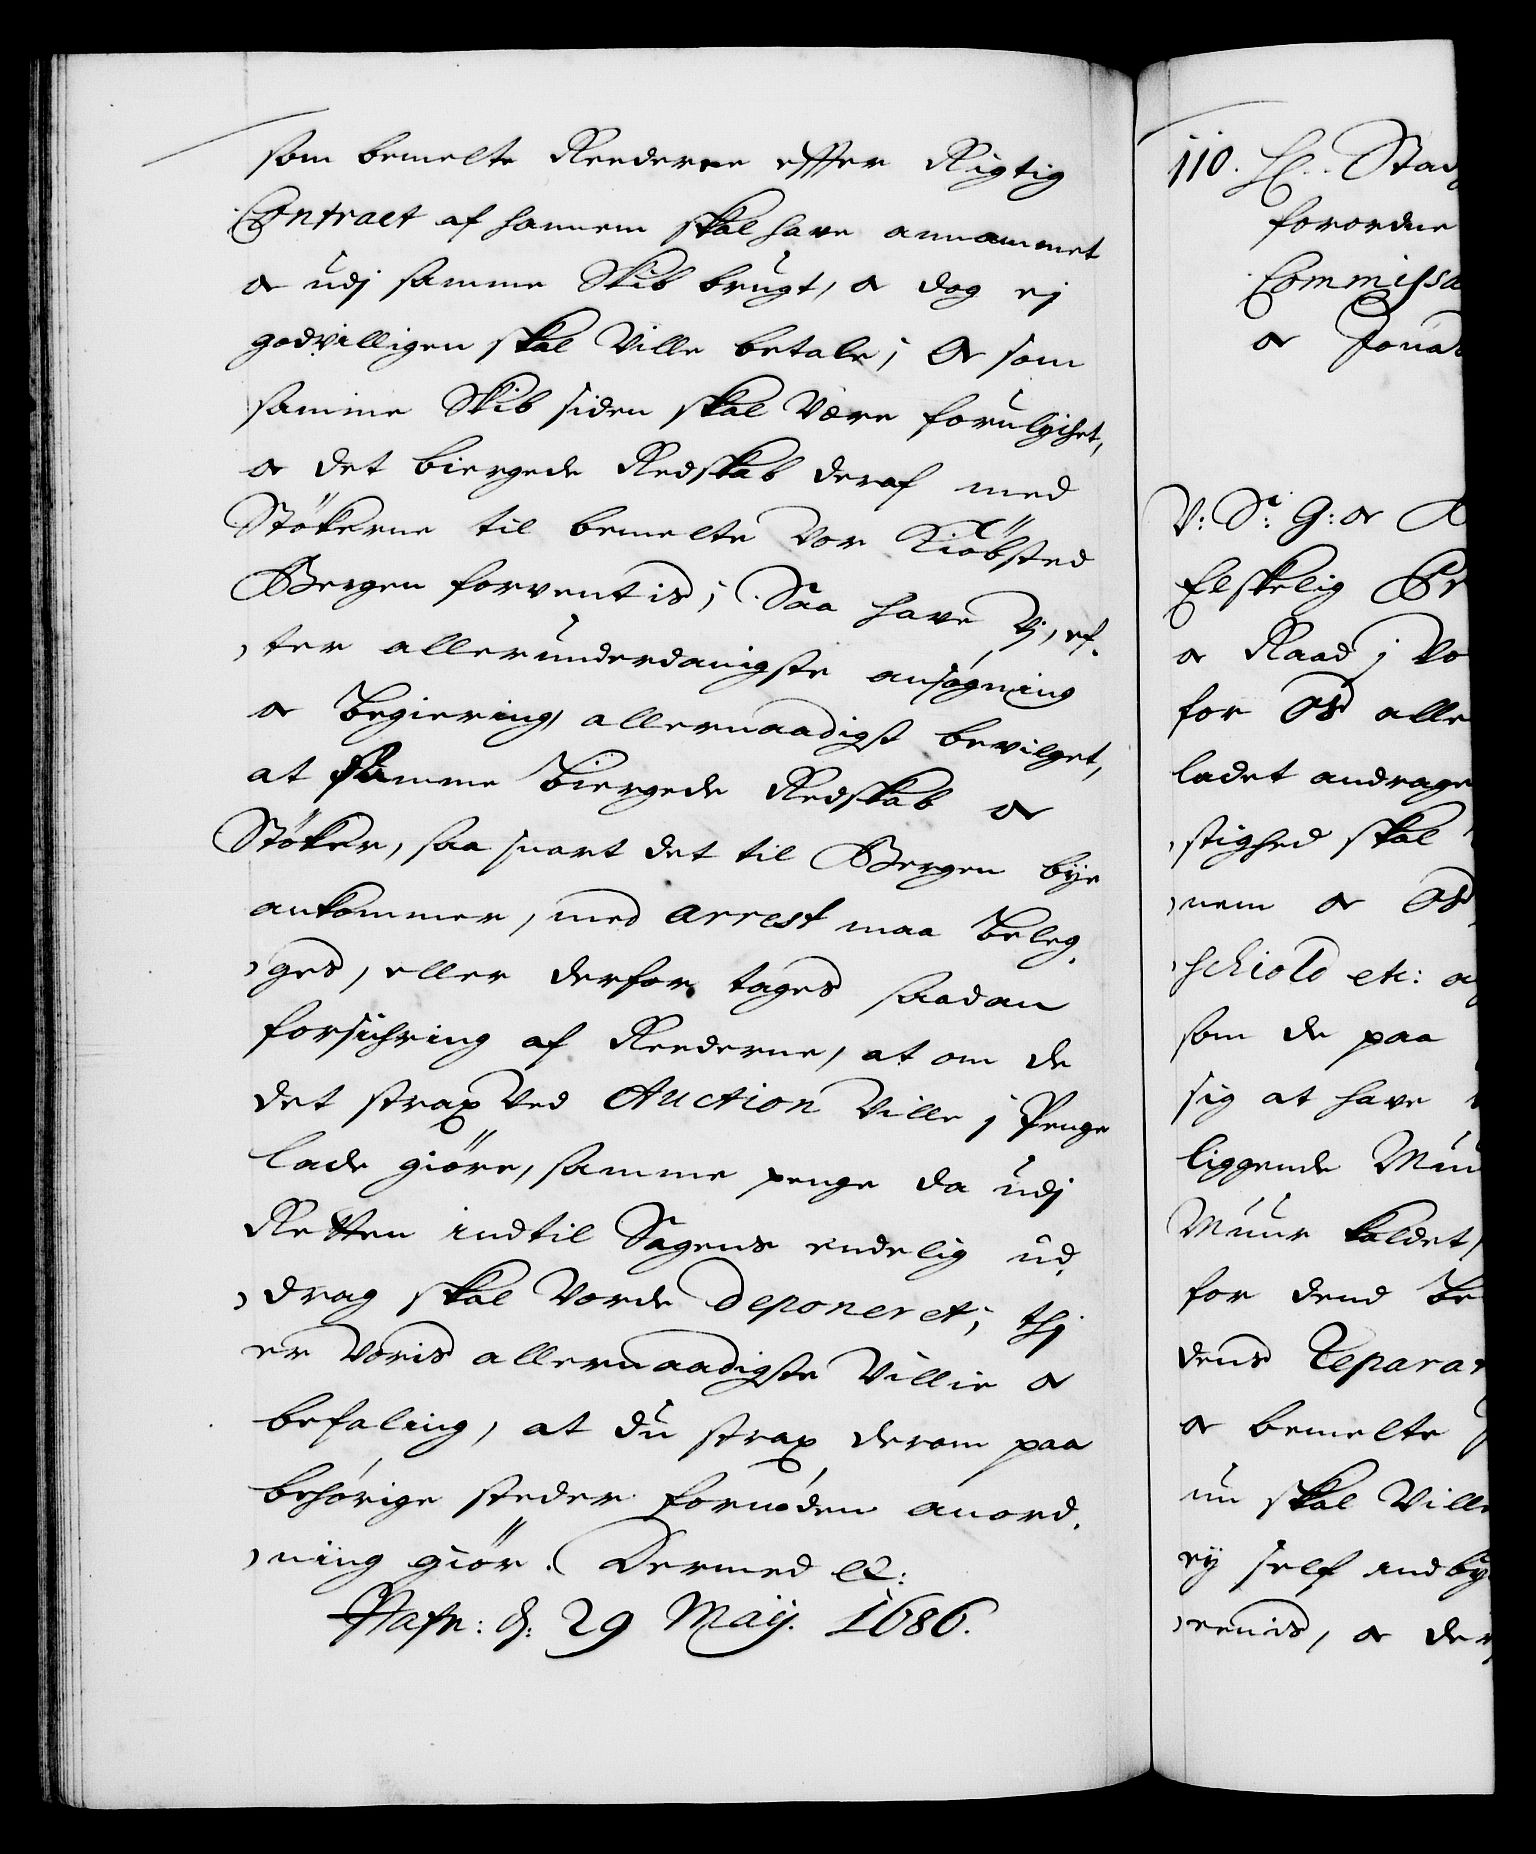 som bemelte Reederne effter Rigtig
Contract af hannem skal have annammet
oc udj samme Skib brugt, oc dog ej
godvilligen skal Ville betale; Oc som
samme Skib siden skal Være forulychet,
oc det biergede Redskab deraf med
Stökerne til bemelte Vor Kiöbsted
Bergen forventis; Saa have Vj, ef-
ter allerunderdanigste ansøgning
oc Begiering, allernaadigst bevilget,
at samme Biergede Redskab oc
Stöker, saa snart det til Bergen bye
ankommer, med Arrest maa Beleg-
ges, eller derfor tages saadan
forsichring af Reederne, at om de
det strax Ved Auction Ville j Penge
lade giöre, samme penge da udj
Retten indtil Sagens endelig ud-
drag skal Vorde Deponeret; thj
er Voris allernaadigste Villie oc
befaling, at du strax derom paa
behørige steder fornöden anord-
ning giör. Dermed etc:
Hafn: d: 29 Maij. 1686.
110. H. Stad
forordne
Commissa
oc Jona
V: S: G: oc
Elskelig
oc Raad j Vo
for Os alle
ladet andrage
stighed skal
nem oc Os
schiold etc: o
som de paa
sig at have
liggende Muu
Muur kaldet,
for dend Be
dens Repara
oc bemelte
nu skal Ville
ey self indby
renis, oc der